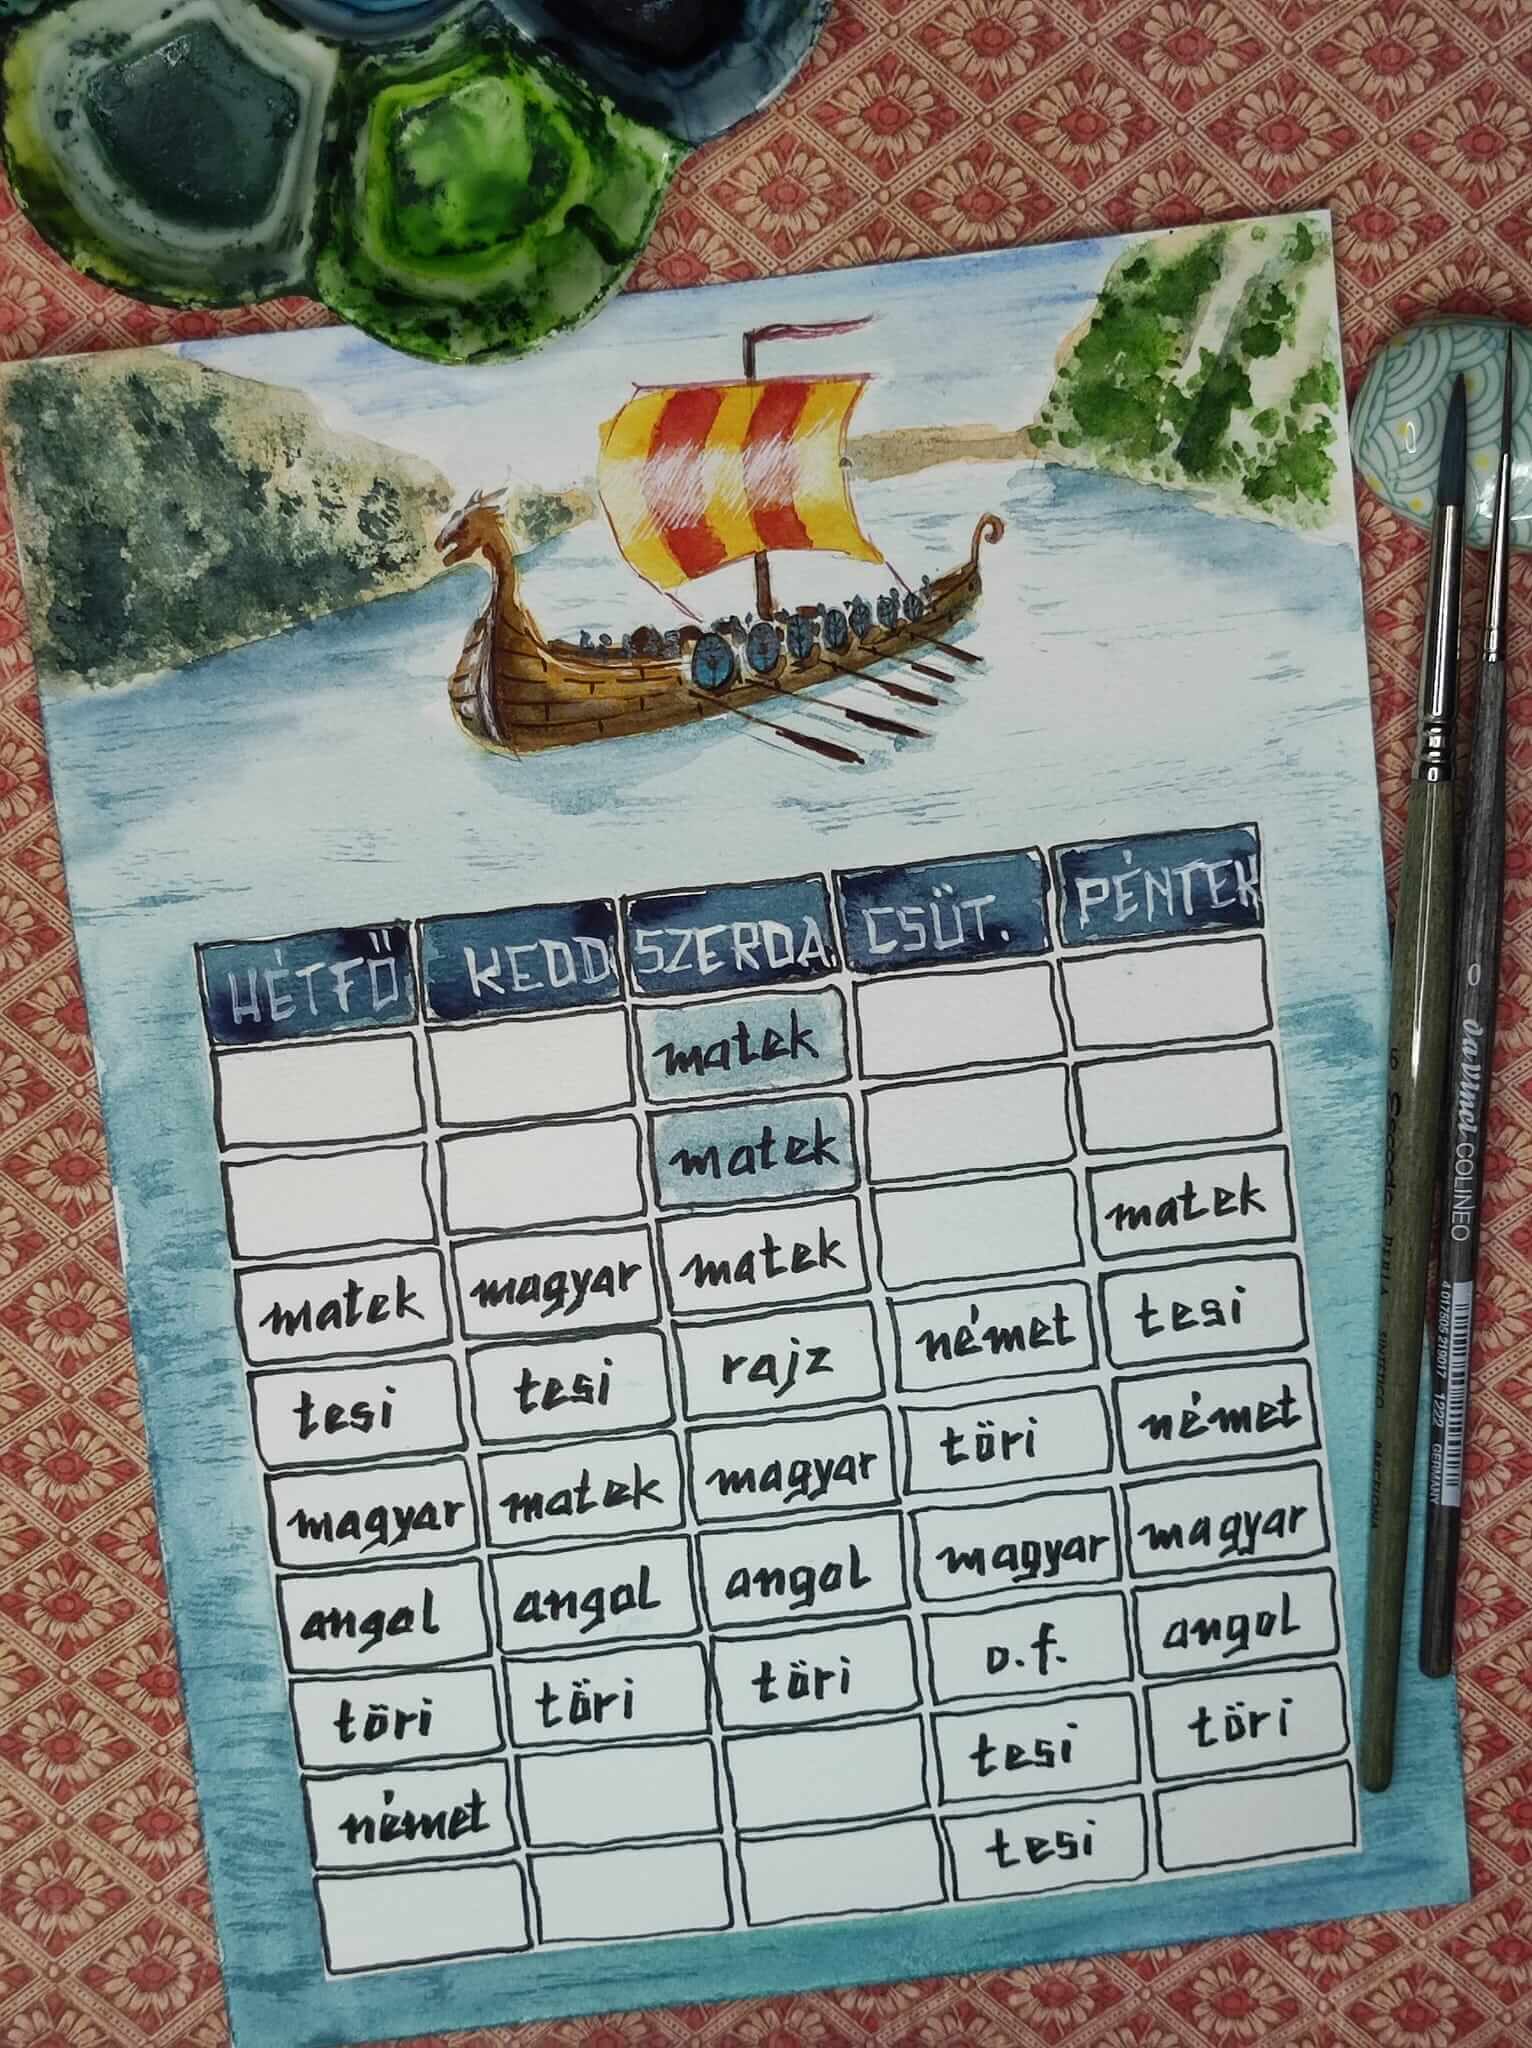 HÉTFŐ KEDD SZERDA CSÜT. PÉNTEK
matek
matek
matek magyar matek matek
tesi tesi rajz német tesi
magyar matek magyar töri német
angol angol angol magyar magyar
töri töri töri o.f. angol
német tesi töri
tesi
0 davinci COLINEO
4 017505 21901 7 1222 GERMANY